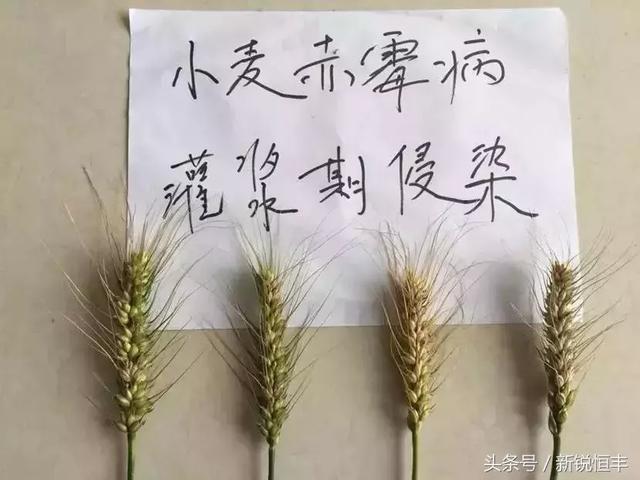 小麦赤霉病
灌浆期侵染
头条号／新锐恒丰